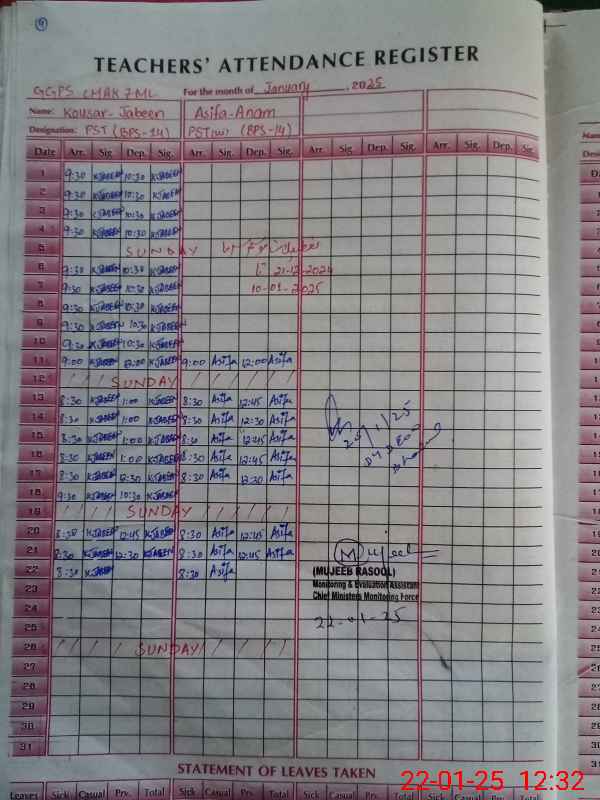 9
TEACHERS' ATTENDANCE REGISTER
GGPS CMAK 7ML For the month of January, 2025
Name: Kousar-Jabeen Asifa-Anam
Designation: PST (BPS-14) PST(W) (BPS-14)
Date Arr. Sig. Dep. Sig. Arr. Sig. Dep. Sig. Arr. Sig. Dep. Sig. Arr. Sig. Dep. Sig.
1 9:30 KJABEEN 10:30 KJABEEN
2 9:30 KJABEEN 10:30 KJABEEN
3 9:30 KJABEEN 10:30 KJABEEN
4 9:30 KJABEEN 10:30 KJABEEN
5 SUNDAY
6 9:30 KJABEEN 10:30 KJABEEN 21-12-2024
7 9:30 KJABEEN 10:30 KJABEEN 10-01-2025
8 9:30 KJABEEN 10:30 KJABEEN
9 9:30 KJABEEN 10:30 KJABEEN
10 9:30 KJABEEN 10:30 KJABEEN
11 9:00 KJABEEN 12:00 KJABEEN 9:00 Asifa 12:00 Asifa
12 SUNDAY
13 8:30 KJABEEN 1:00 KJABEEN 8:30 Asifa 12:45 Asifa
14 8:30 KJABEEN 1:00 KJABEEN 8:30 Asifa 12:30 Asifa
15 8:30 KJABEEN 1:00 KJABEEN 8:30 Asifa 12:45 Asifa
16 8:30 KJABEEN 1:00 KJABEEN 8:30 Asifa 12:45 Asifa
17 8:30 KJABEEN 12:30 KJABEEN 8:30 Asifa 12:30 Asifa
18 9:30 KJABEEN 10:30 KJABEEN
19 SUNDAY
20 8:30 KJABEEN 12:45 KJABEEN 8:30 Asifa 12:45 Asifa
21 8:30 KJABEEN 12:30 KJABEEN 8:30 Asifa 12:45 Asifa
22 8:30 KJABEEN 8:30 Asifa
23
24
25
26 SUNDAY
27
28
29
30
31
Mujeeb
(MUJEEB RASOOL)
Monitoring & Evaluation Assistant
Chief Ministers Monitoring Force
22-01-25
STATEMENT OF LEAVES TAKEN
Leaves Sick Casual Prv. Total Sick Casual Prv. Total Sick Casual Prv. Total Sick Casual Prv. Total
22-01-25 12:32